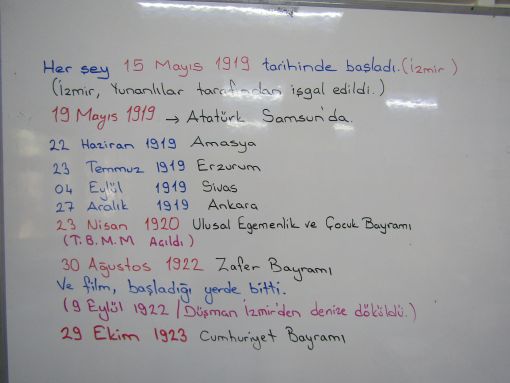 Her şey 15 Mayıs 1919 tarihinde başladı. (İzmir)
(İzmir, Yunanlılar tarafından işgal edildi.)
19 Mayıs 1919 → Atatürk Samsun'da.
22 Haziran 1919 Amasya
23 Temmuz 1919 Erzurum
04 Eylül 1919 Sivas
27 Aralık 1919 Ankara
23 Nisan 1920 Ulusal Egemenlik ve Çocuk Bayramı
(T.B.M.M Açıldı)
30 Ağustos 1922 Zafer Bayramı
Ve film, başladığı yerde bitti.
(9 Eylül 1922 / Düşman İzmir'den denize döküldü.)
29 Ekim 1923 Cumhuriyet Bayramı